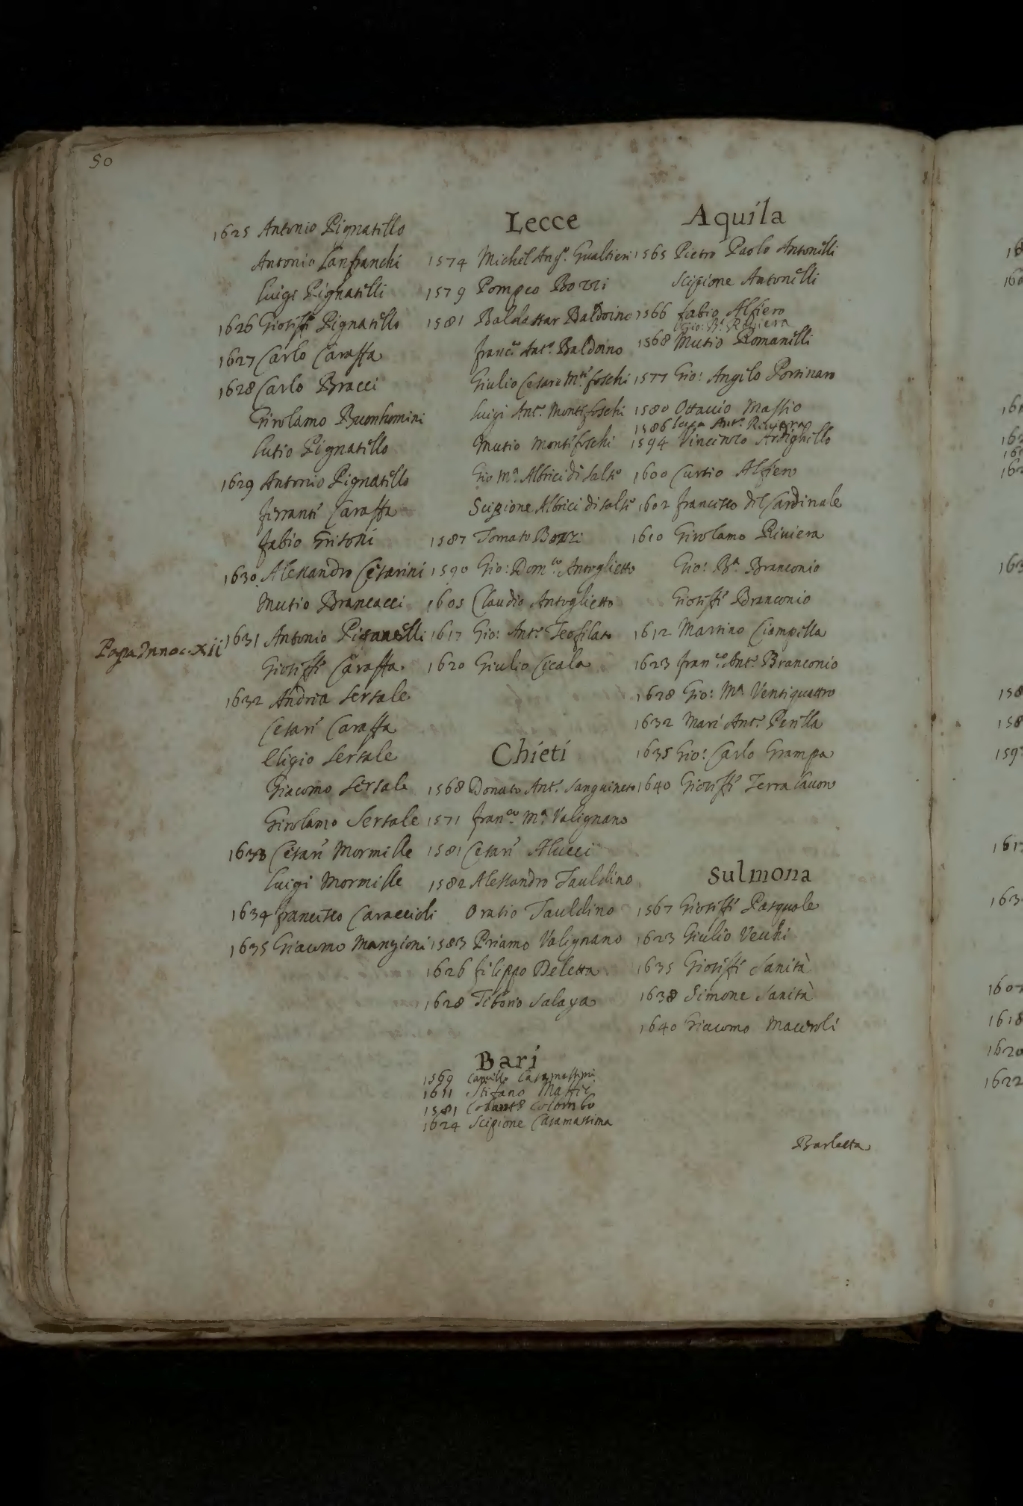 50
1625 Antonio Pignatello
Antonio Lanfranchi
Luigi Pignatelli
1626 Gioseffe Pignatello
1627 Carlo Caraffa
1628 Carlo Bracci
Girolamo Buonhomini
Lutio Pignatello
1629 Antonio Pignatello
ferrante Caraffa
fabio Grisoni
1630 Alessandro Cesarini
Mutio Brancacci
Papa Innoc. xii
1631 Antonio Pignatelli
Gioseffe Caraffa
1632 Andrea Sersale
Cesare Caraffa
Eligio Sersale
Giacomo Sersale
Girolamo Sersale
1633 Cesare Mormille
Luigi Mormille
1634 francesco Caraccioli
1635 Giacomo Mangioni
Lecce
1574 Michel Ang.º Gualtieri
1579 Pompeo Bozzi
1581 Baldassar Baldoino
franc.º Ant.º Baldoino
Giulio Cesare M.te foschi
Luigi Ant.º Monte foschi
Mutio Monte foschi
Gio M.ª Albrici di Salse
Scipione Albrici di Salse
1587 Tomaso Bozzi
1590 Gio: Dom.co Antoglietto
1605 Claudio Antoglietto
1617 Gio: Ant.º Teofilato
1620 Giulio Cicala
Chieti
1568 Donato Ant.º Sanguineto
1571 fran.co M.ª Valignano
1581 Cesare Alucci
1582 Alessandro Tauldino
Oratio Tauldino
1583 Priamo Valignano
1626 filippo Deletta
1628 Tiberio Salaya
Bari
1569 Camillo Casamassima
1611 Stefano Massil
1581 Colombo
1624 Scipione Casamassima
Aquila
1565 Pietro Paolo Antonelli
Scipione Antonelli
1566 fabio Alfiero
Gio: B.ª Riviera
1568 Mutio Romanelli
1577 Gio: Angelo Porcinaro
1580 Ottavio Massio
1586 Luca Ant.º Riviera
1594 Ardighello
1600 Curtio Alfiero
1602 francesco del Cardinale
1610 Girolamo Riviera
Gio: B.ª Branconio
Gioseffe Branconio
1612 Martino Ciampella
1623 fran.co Ant.º Branconio
1628 Gio: M.ª Ventiquattro
1632 Mari Ant.º Penella
1635 Gio: Carlo Grampa
1640 Gioseffe Terra lavoro
Sulmona
1567 Gioseffe Pasquale
1623 Giulio Vecchi
1635 Gioseffe Sanità
1638 Simone Sanità
1640 Giacomo Maceroli
Barletta